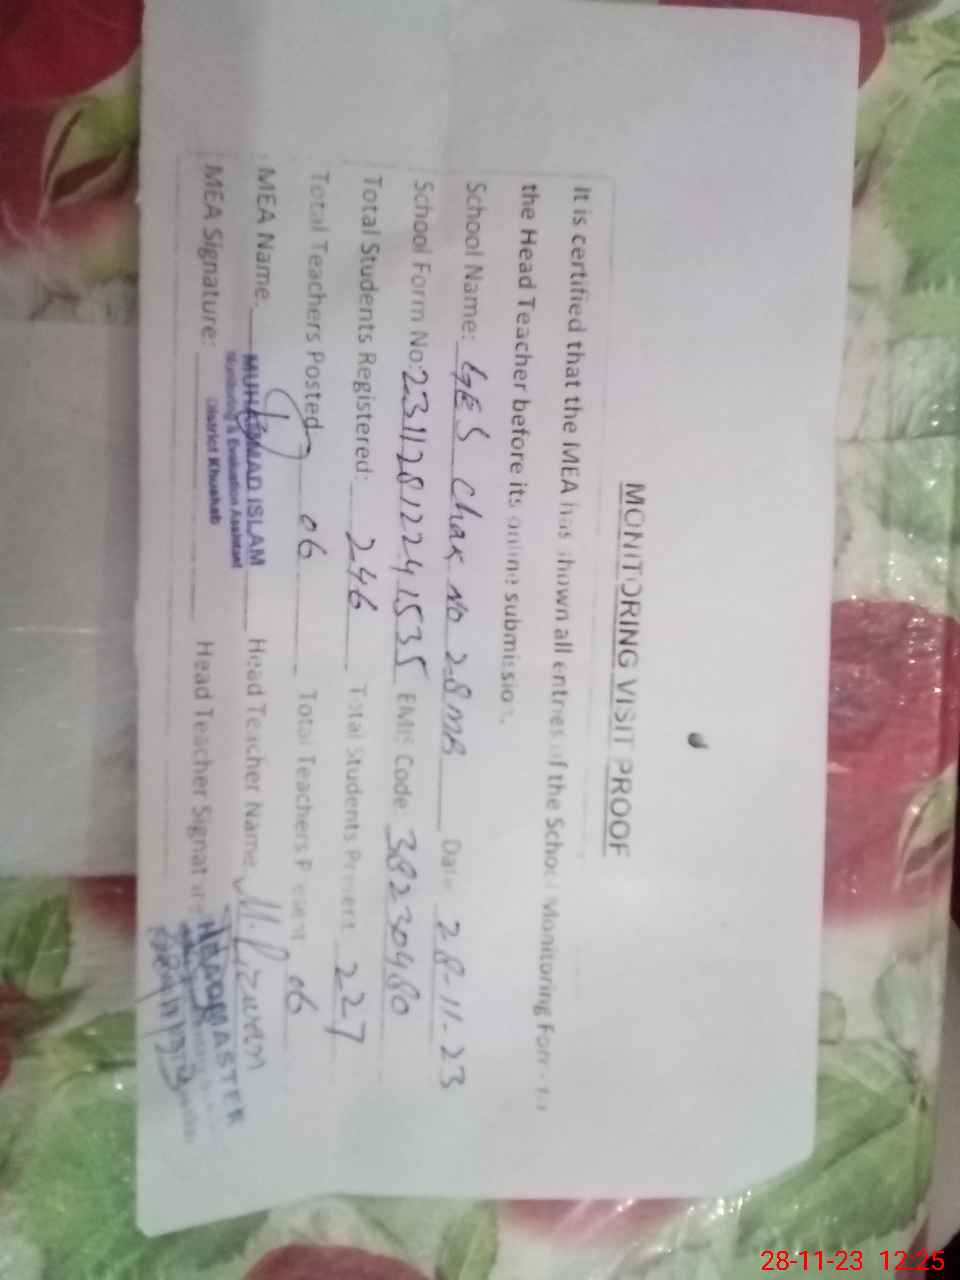 MONITORING VISIT PROOF
It is certified that the MEA has shown all entries of the School Monitoring Form to
the Head Teacher before its online submission.
School Name: GES Chak No 28MB Date 28-11-23
School Form No: 23112812241535 EMIS Code: 38230480
Total Students Registered: 246 Total Students Present 227
Total Teachers Posted 06 Total Teachers Present 06
MEA Name. MUHAMMAD ISLAM Head Teacher Name M. Rizwan
Monitoring & Evaluation Assistant
District Khushab
MEA Signature: Head Teacher Signature
HEADMASTER
28-11-23 12:25